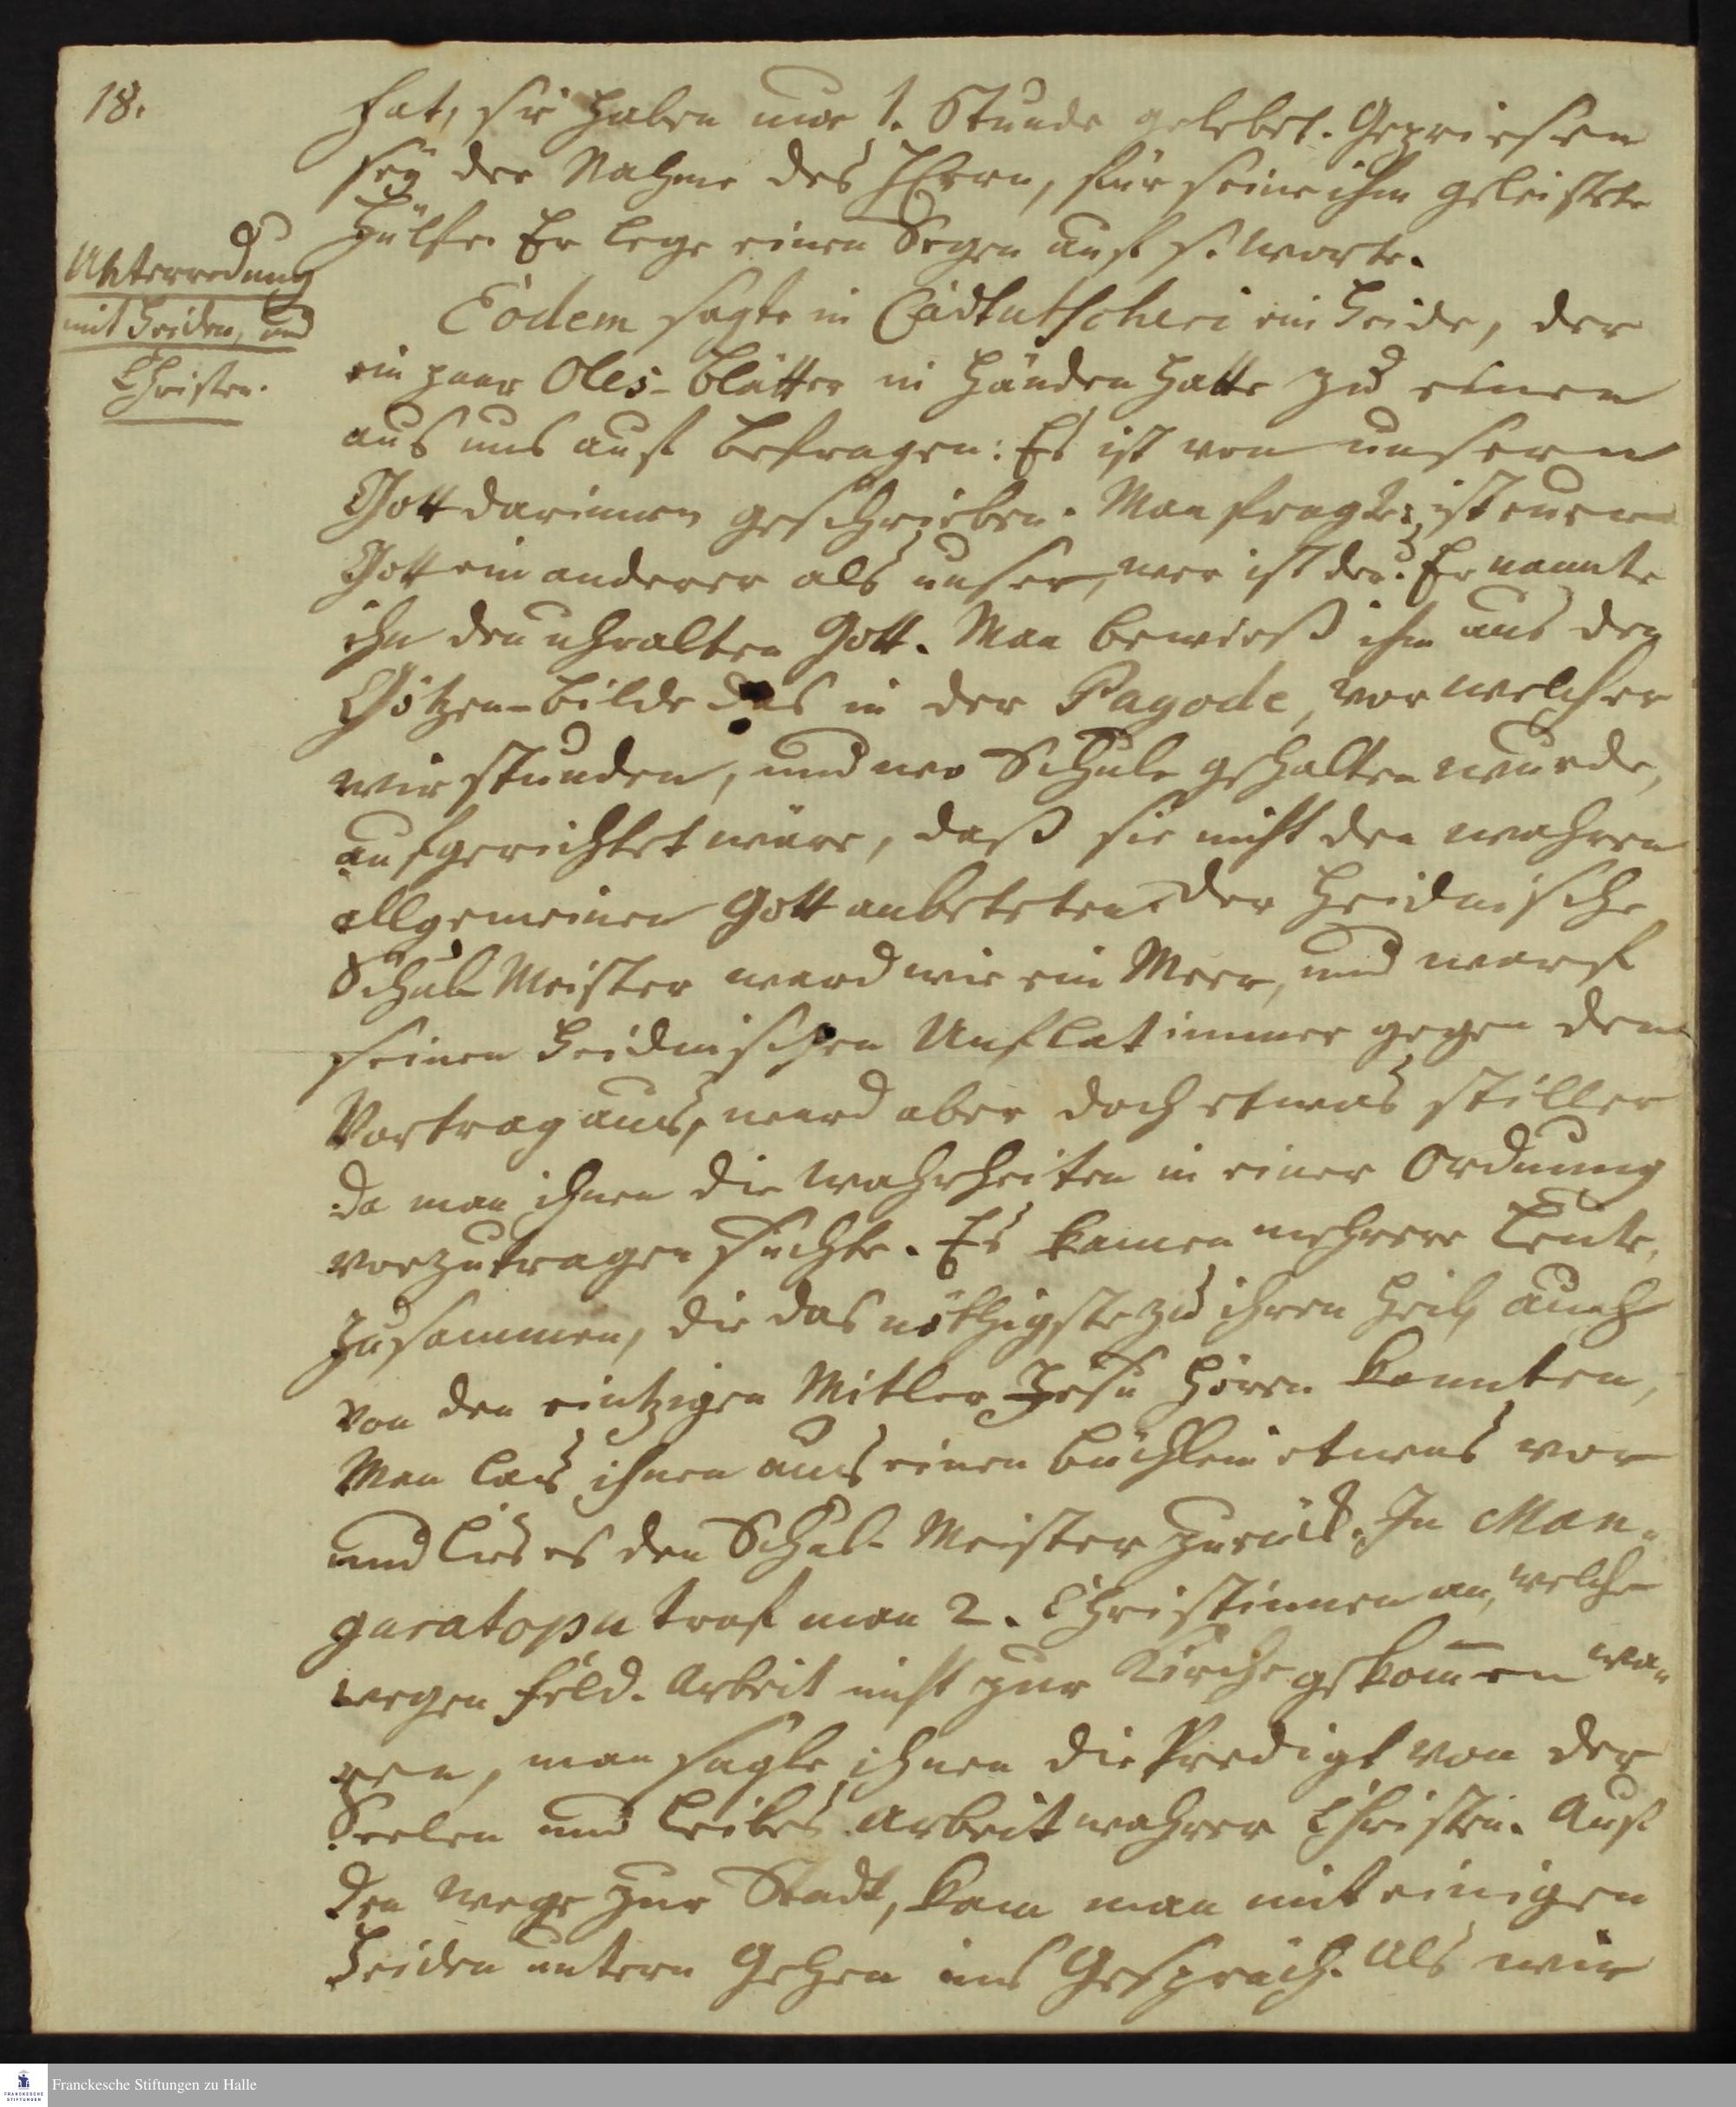 18.
hat, sie haben nur 1. Stunde gelebet. Gepriesen
sey der Nahme des HErrn, für seine ihm geleistete
Hülfe. Er lege einen Segen auf s. Worte.
Unterredung
mit Heiden, und
Christen.
Eodem sagte in Cadtutscheri ein Heide, der
ein paar Oles-blätter in Händen hatte zu einen
aus uns auf befragen: Es ist von unsern
Gott darinnen geschrieben. Man fragte: ist euer
Gott ein anderer als unser, wer ist der? Er nannte
ihn den uhralten Gott. Man bewieß ihm aus den
Götzen-bilde das in der Pagode, vor welcher
wir stunden, und wo Schule gehalten wurde,
aufgerichtet wäre, daß sie nicht den wahren
allgemeinen Gott anbeteten. Der Heidnische
Schul-Meister ward wie ein Meer, und warf
seinen Heidnischen Unflat immer gegen den
Vortrag aus, ward aber doch etwas stiller
da man ihnen die Wahrheiten in einer Ordnung
vorzutragen suchte. Es kamen mehrere Leute,
zusammen, die das nöthigste zu ihren Heil, auch
von den eintzigen Mitler Jesu hören konnten,
Man las ihnen aus einen büchlein etwas vor
und lies es den Schul-Meister zurück. In Man-
garatopu traf man 2. Christinnen an, welche
wegen Feld-Arbeit nicht zur Kirche gekom̄en wa-
ren, man sagte ihnen die Predigt von der
Seelen und Leibes Arbeit wahrer Christen. Auf
den Wege zur Stadt, kam man mit einigen
Heiden untern Gehen ins Gespräch. Als wir
FRANCKESCHE
STIFTUNGEN
Franckesche Stiftungen zu Halle